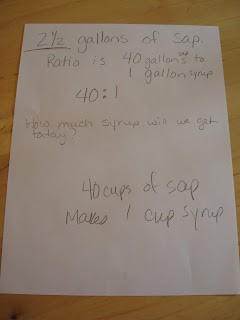 2½ gallons of Sap.
Ratio is 40 gallons sap to
1 gallon syrup
40:1
How much syrup will we get
today?
40 cups of sap
Makes 1 cup syrup